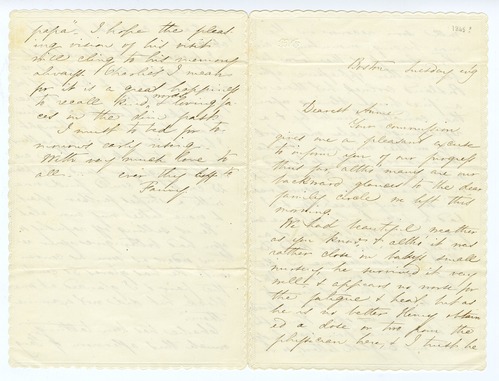 papa". I hope the pleas
ing vision of his visit
will cling to his memory
always (Charlie's I mean
for it is a great happiness
to recall kind, words & loving fa
ces in the dim past.
I must to bed for to
morrows early rising.
With very much love to
all. ever thy
Fanny
1845?
Boston Tuesday evg
Dearest Annie.
Your commission
gives me a pleasant excuse
to inform you of our progress
thus far, altho many are our
backward glances to the dear
family circle we left this
morning.
We had beautiful weather
as you know, & altho' it was
rather close in baby's small
nursery he survived it very
well & appears no worse for
the fatigue & heat but as
he is no better Henry obtain
ed a dose or two from the
physician here, & I trust he